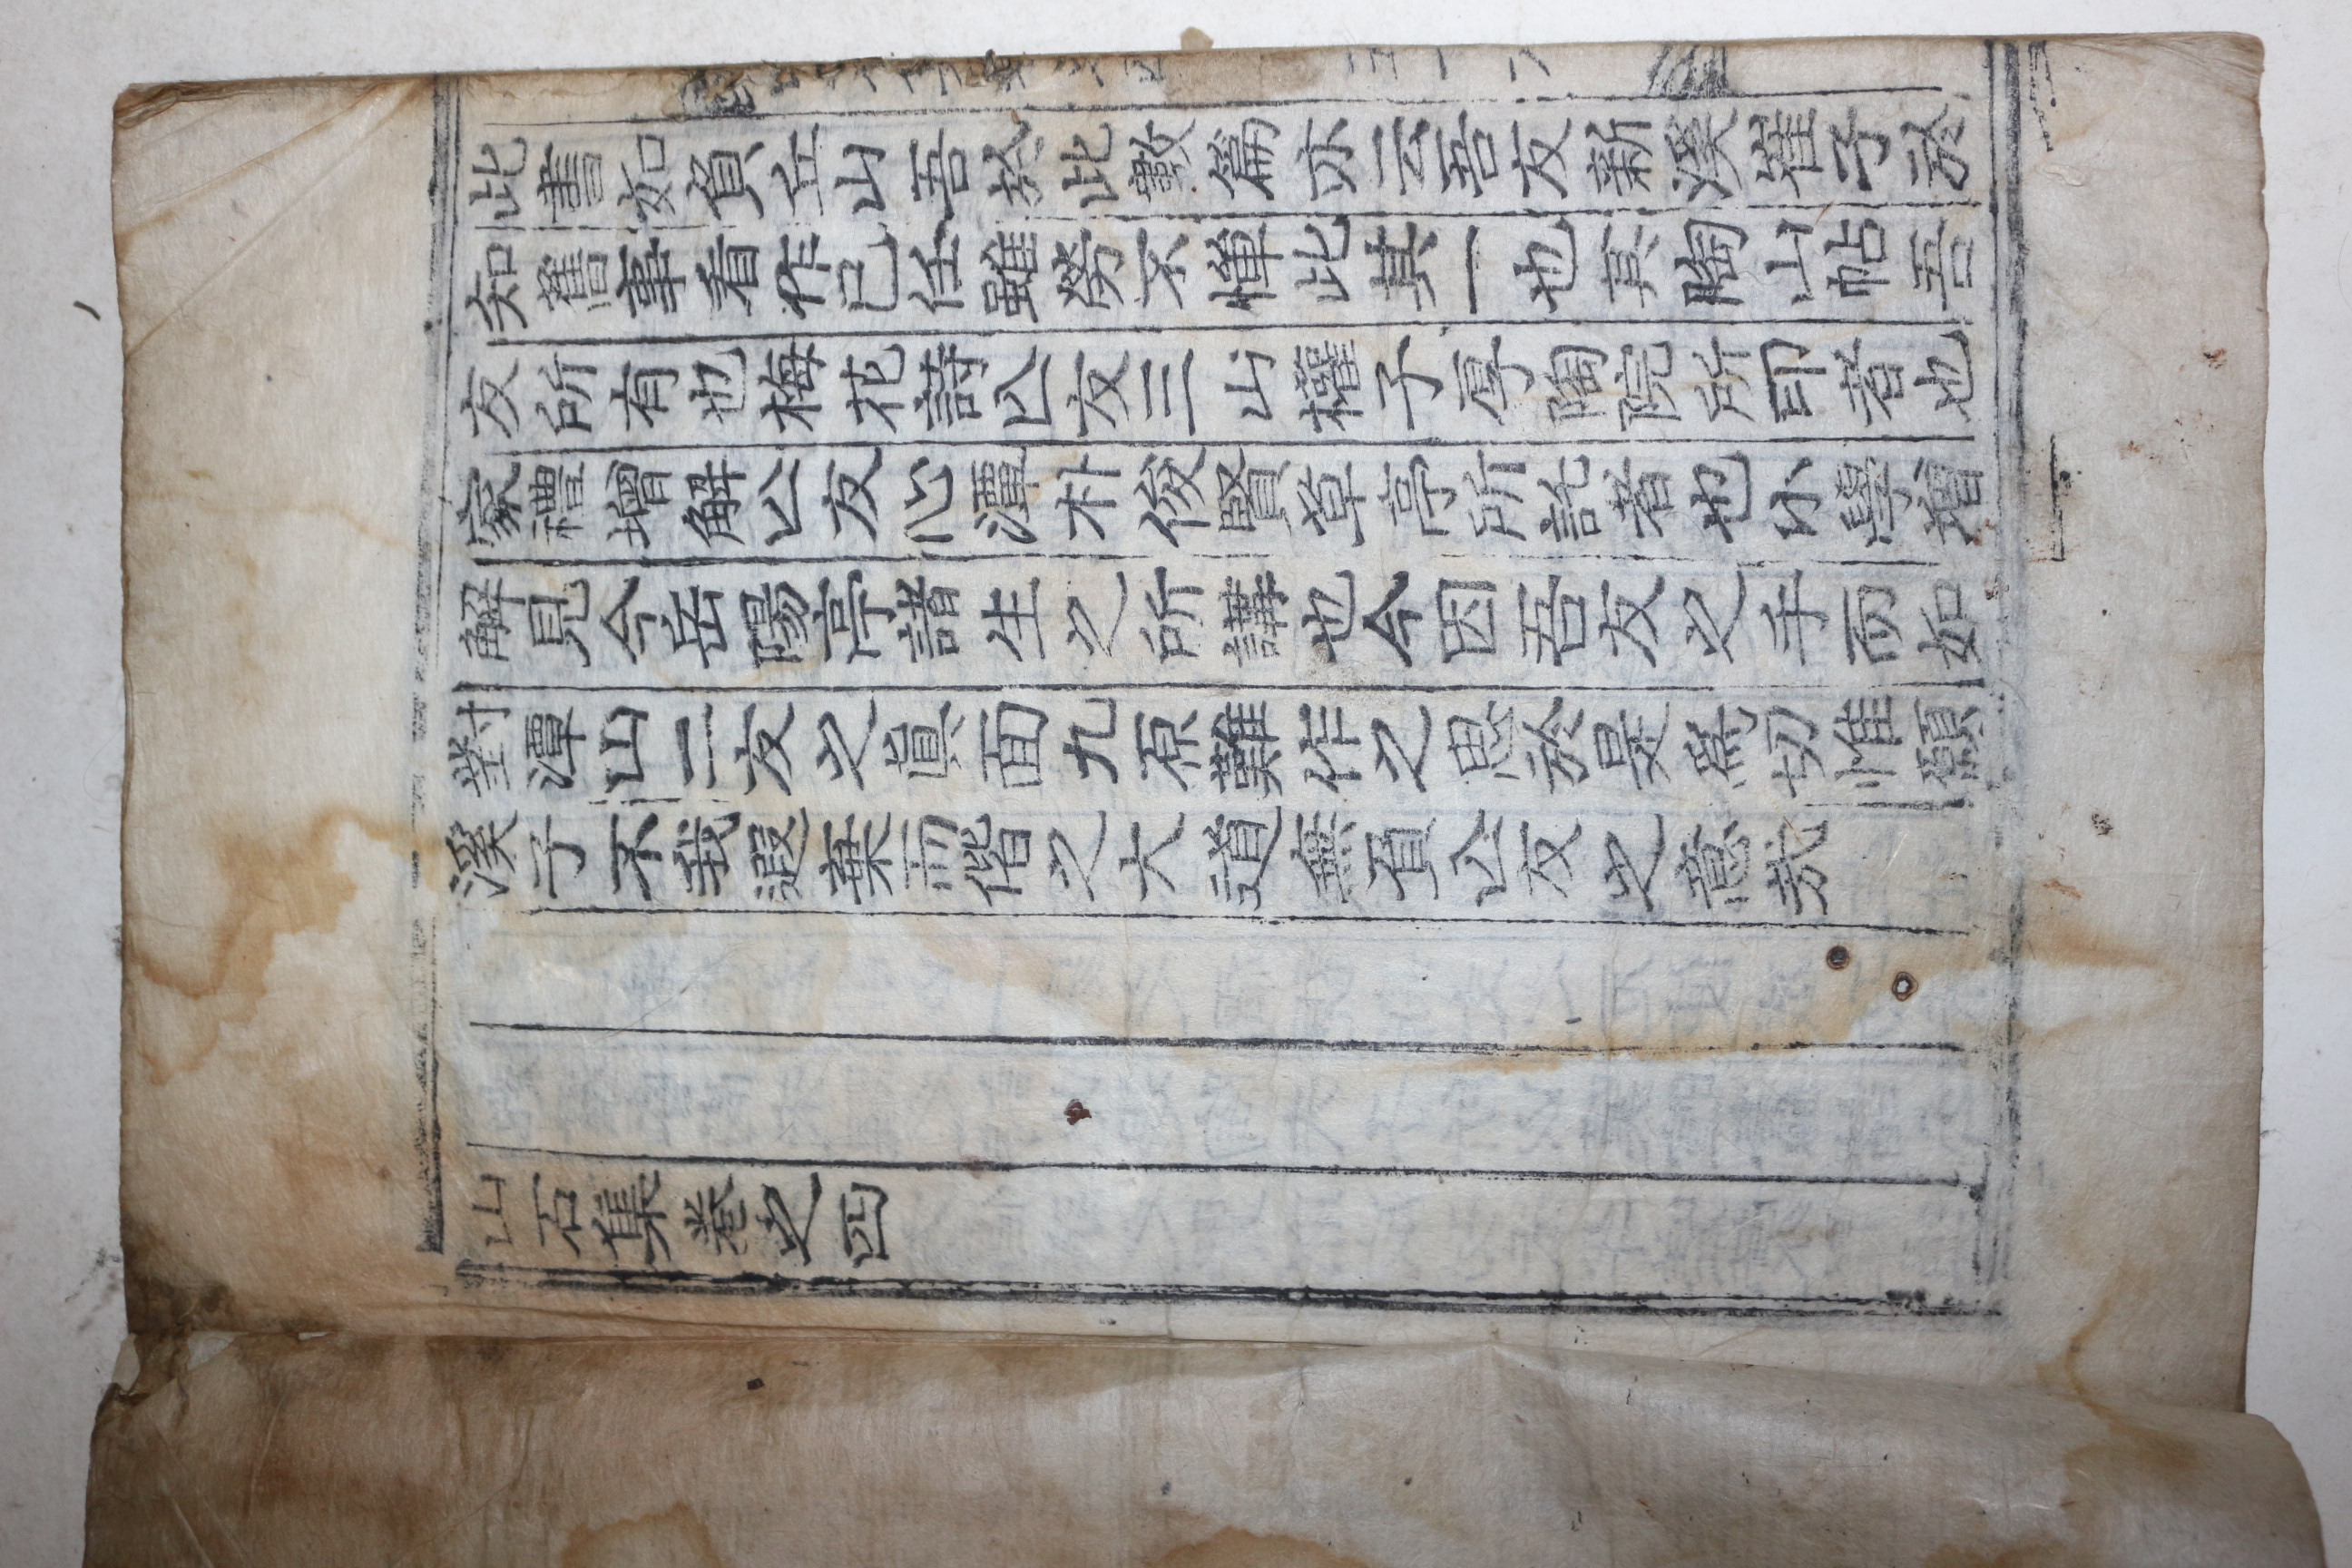 此書如負丘山吾於此數篇亦云吾友新溪崔子於
知舊事看作己任雖勞不憚此其一也其陶山帖吾
友所有也梅花詩亾友三山權子厚陶院所印者也
家禮增解亾友心潭朴俊賢草亭所託者也小學增
解見今岳陽亭諸生之所講也今因吾友之手而如
對潭山二友之眞面九原難作之思於是爲切惟願
溪子不我遐棄而偕之大道無負亾友之意哉
山石集卷之四